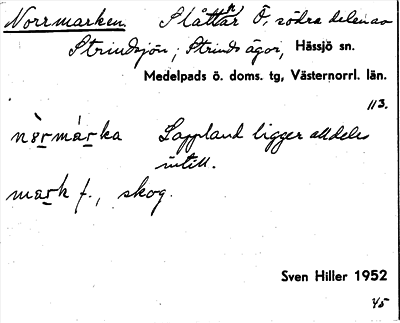 Norrmarken. Slåttar Ö, södra delen av
Strindsjön, Strinds ägor, Hässjö sn.
Medelpads ö. doms. tg, Västernorrl. län.
113.
nòrmàrka Lappland ligger alldeles
intill.
mark f., skog.
Sven Hiller 1952
45